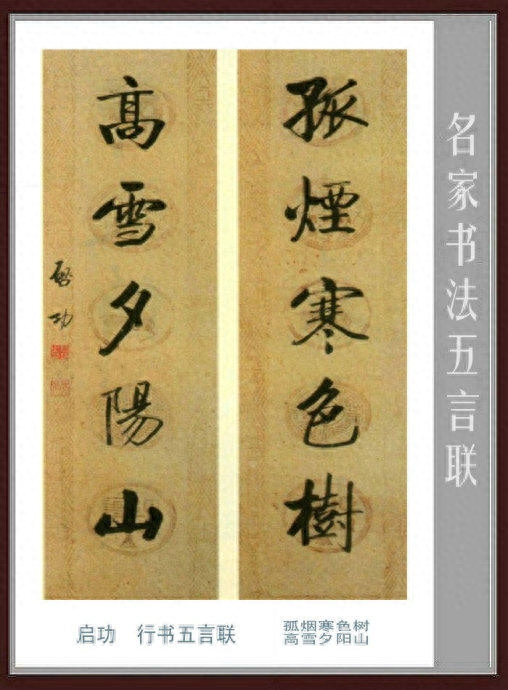 孤煙寒色樹
高雪夕陽山
啟功
名家书法五言联
启功 行书五言联
孤烟寒色树
高雪夕阳山